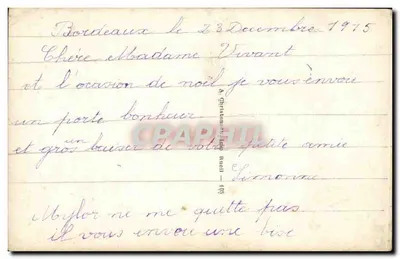 Bordeaux le 23 Decembre 1915
Chère Madame Vivant
vt l'ocasion de noël je vous envou
un porte bonheur
et un gros buiser de votre petite amie
Simonne
Mylor ne me quitte pas
il vous envou une bise
CPAPHIL